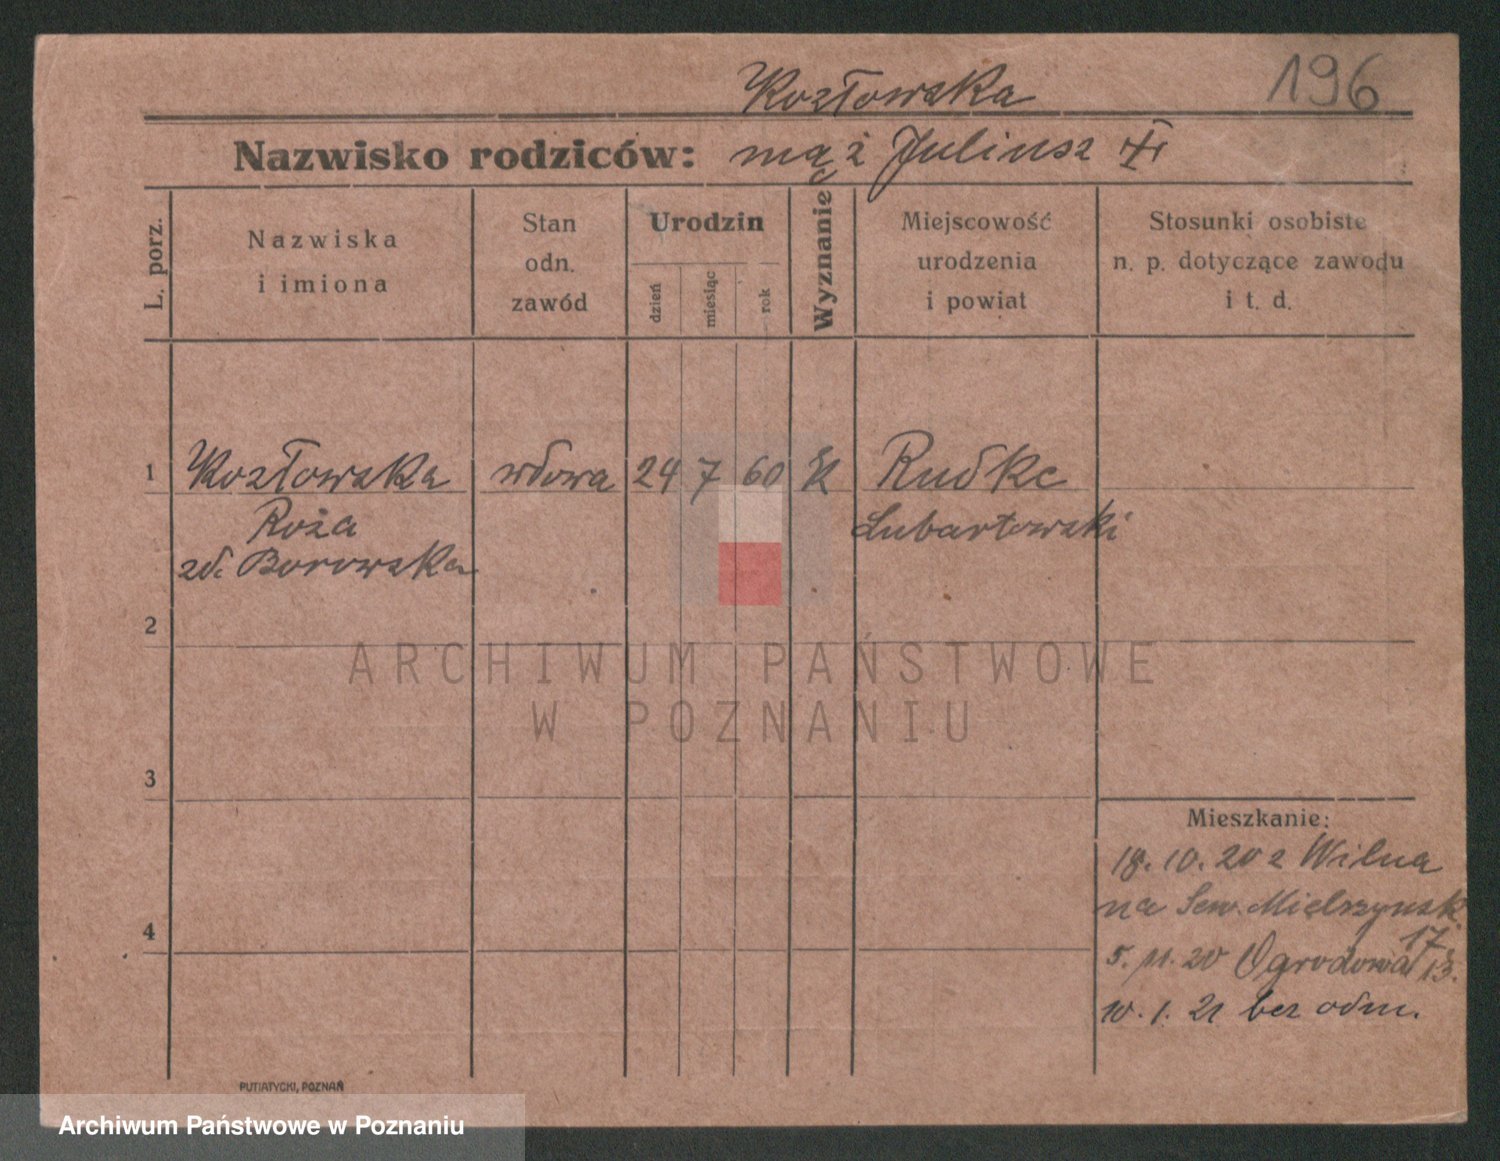 Kozłowska
196
Nazwisko rodziców: mąż Juliusz
L. porz.
Nazwiska
i imiona
Stan
odn.
zawód
Urodzin
dzień
miesiąc
rok
Wyznanie
Miejscowość
urodzenia
i powiat
Stosunki osobiste
n. p. dotyczące zawodu
i t. d.
1 Kozłowska wdowa 24 7 60 k Rudka
Roża Lubartowski
zd. Borowska
2
ARCHIWUM PAŃSTWOWE
W POZNANIU
3
Mieszkanie:
18. 10. 20 z Wilna
na Sew. Mielzyńsk.
4
5. 11. 20 Ogrodowa 17
13.
10. 1. 21 bez odm.
PUTIATYCKI, POZNAŃ
Archiwum Państwowe w Poznaniu